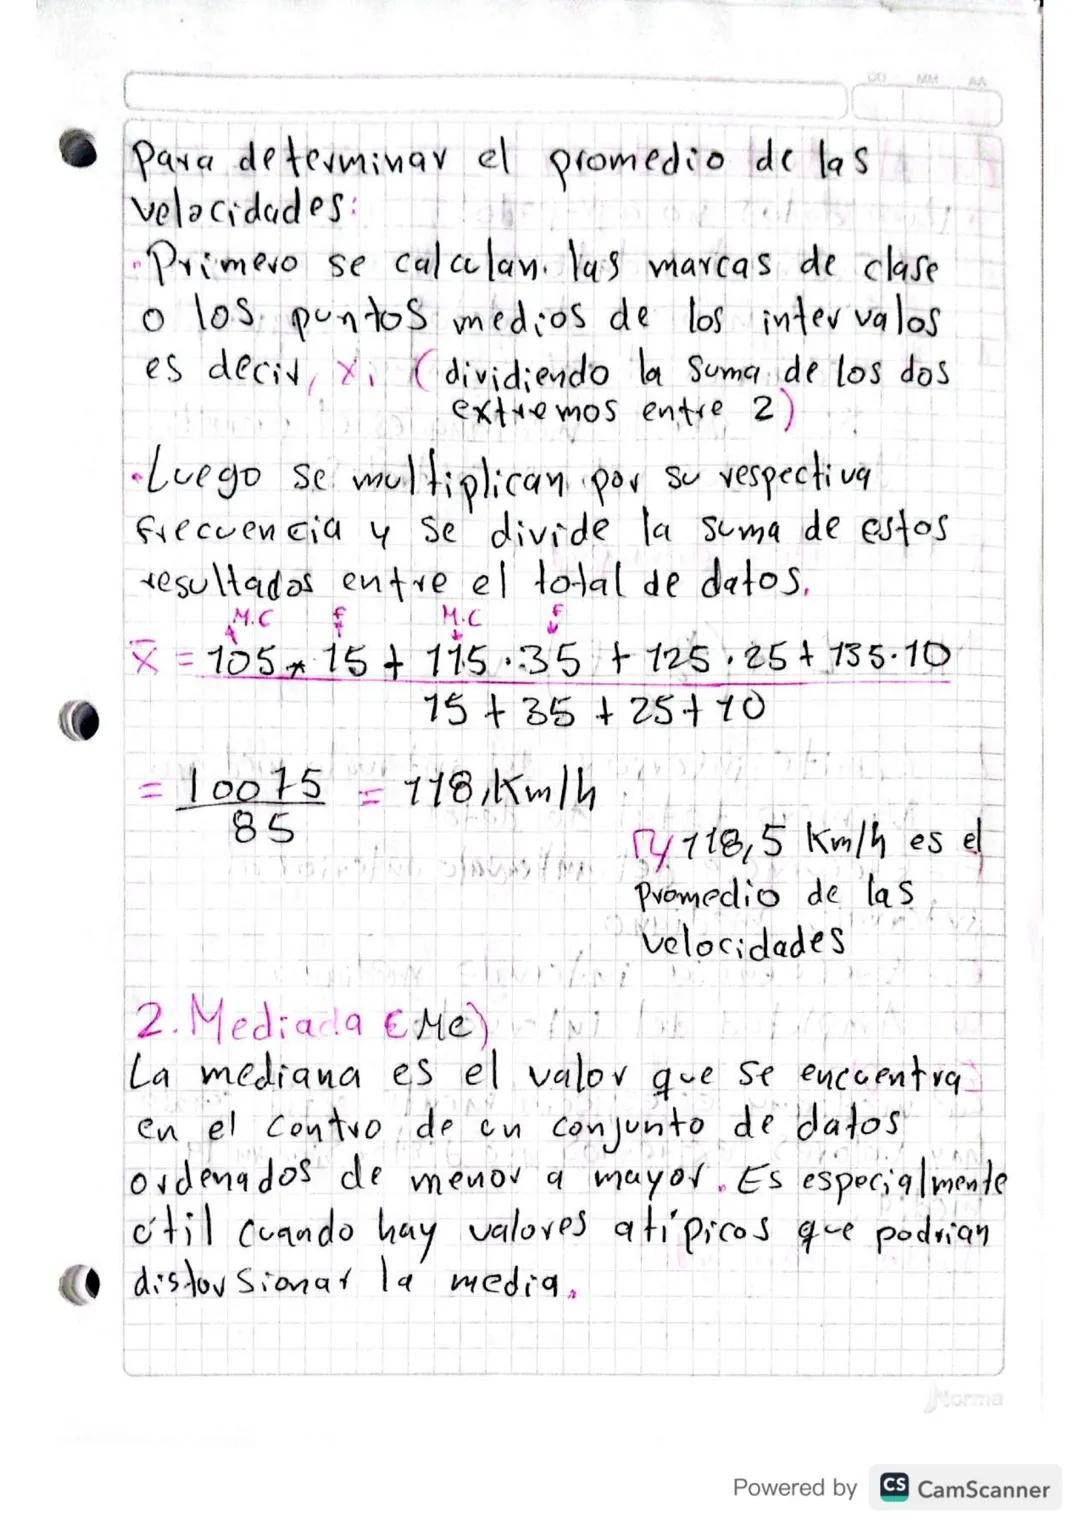 DD MM AA
Para determinar el promedio de las
velocidades:
·Primero se calculan las marcas de clase
o los puntos medios de los intervalos
es decir, xi (dividiendo la suma de los dos
extremos entre 2)
·Luego se multiplican por su respectiva
frecuencia y se divide la suma de estos
resultados entre el total de datos.
M.C f M.C f
x̄ = 105 * 15 + 115 · 35 + 125 · 25 + 135 · 10
15 + 35 + 25 + 10
= 10075 = 118, Km/h
85
R/ 118,5 Km/h es el
promedio de las
velocidades
2. Mediada (Me)
La mediana es el valor que se encuentra
en el centro de un conjunto de datos
ordenados de menor a mayor. Es especialmente
útil cuando hay valores atípicos que podrian
distorsionar la media.
Norma
Powered by CS CamScanner